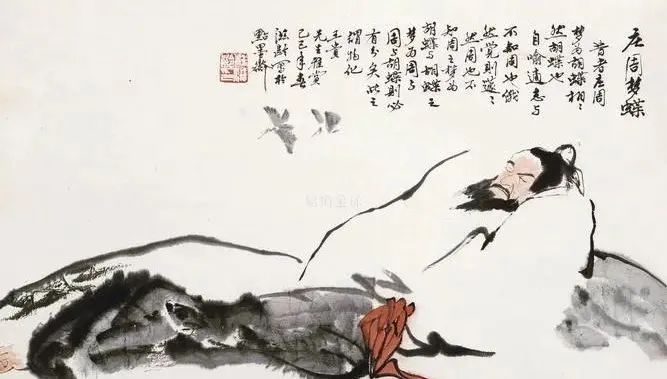 庄周梦蝶
昔者庄周
梦为胡蝶栩〻
然胡蝶也
自喻適志与
不知周也俄
然觉则蘧〻
然周也不
知周之梦为
胡蝶与胡蝶之
梦为周与
周与胡蝶则必
有分矣此之
谓物化
先生雅赏
己巳年春
写於
點墨